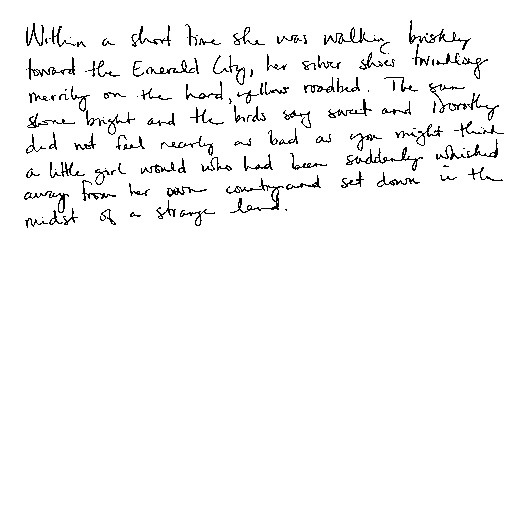 Within a short time she was walking briskly
toward the Emerald City, her silver shoes twinkling
merrily on the hard, yellow roadbed. The sun
shone bright and the birds sang sweet and Dorothy
did not feel nearly as bad as you might think
a little girl would who had been suddenly whisked
away from her own country and set down in the
midst of a strange land.